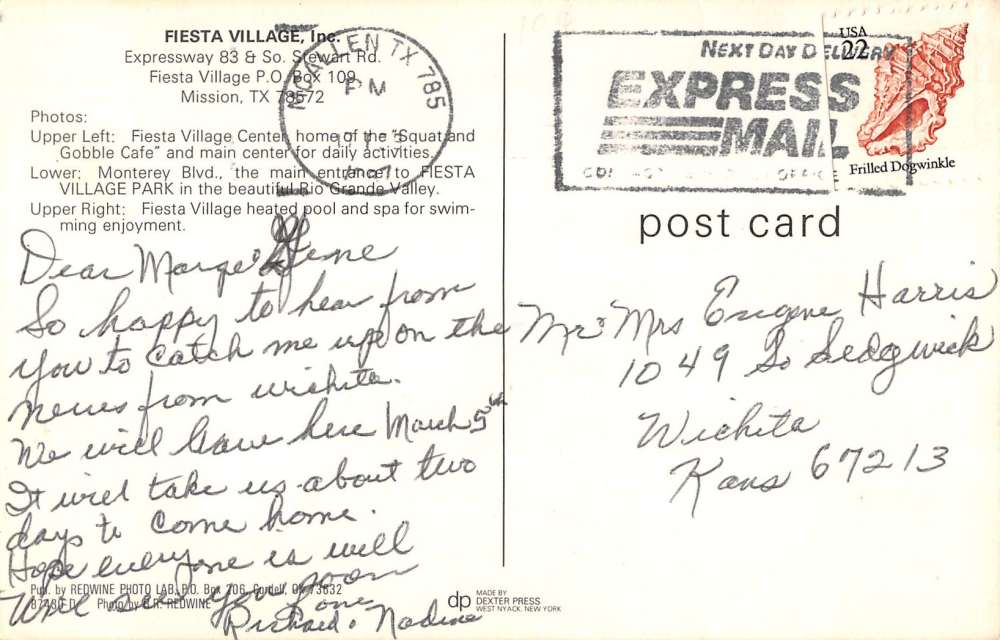 FIESTA VILLAGE, Inc.
Expressway 83 & So. Stewart Rd.
Fiesta Village P.O. Box 109
Mission, TX 78572
Photos:
Upper Left: Fiesta Village Center, home of the "Squat and
Gobble Cafe" and main center for daily activities.
Lower: Monterey Blvd., the main entrance to FIESTA
VILLAGE PARK in the beautiful Rio Grande Valley.
Upper Right: Fiesta Village heated pool and spa for swim-
ming enjoyment.
McALLEN TX 785
PM
NEXT DAY DELIVERY
EXPRESS
MAIL
USA
22
Frilled Dogwinkle
post card
Dear Marge & Gene
So happy to hear from
you to catch me up on the
news from wichita.
We will leave here March 5th
It will take us about two
days to come home.
Hope everyone is well
Will see you soon
Love
Richard & Nadine
Mr & Mrs Eugene Harris
1049 So Sedgwick
Wichita
Kans 67213
Pub. by REDWINE PHOTO LAB, P.O. Box 206, Cordell, OK 73632
87480-D Photo by REDWINE
dp MADE BY
DEXTER PRESS
WEST NYACK, NEW YORK